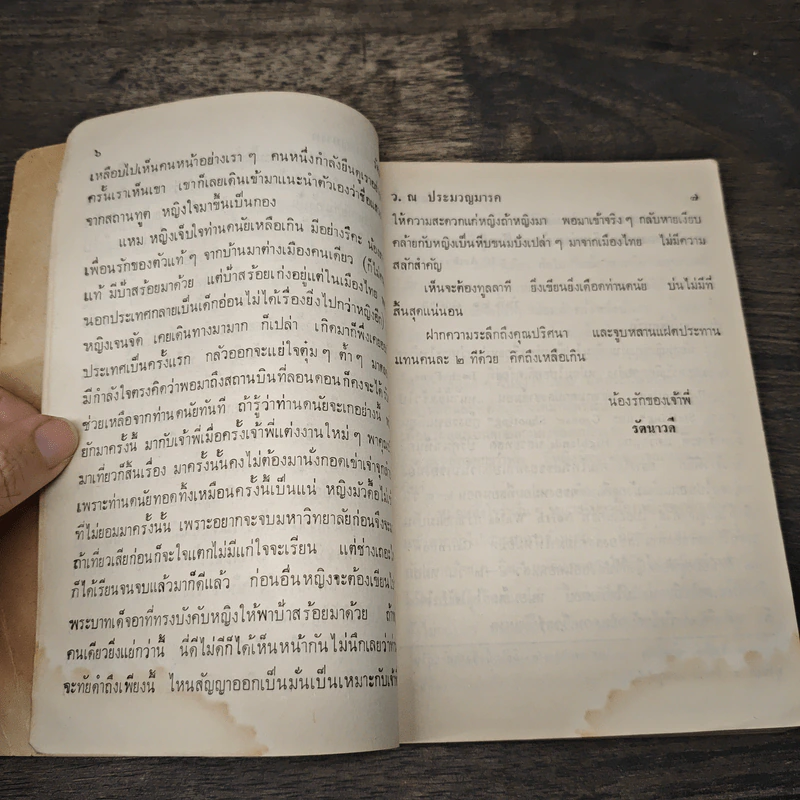 ๖
เหลือบไปเห็นคนหน้าอย่างเรา ๆ คนหนึ่งกำลังยืนดูเรา
ครั้นเราเห็นเขา เขาก็เลยเดินเข้ามาแนะนำตัวเองว่าชื่อ
จากสถานทูต หญิงใจมาขึ้นเป็นกอง
แหม หญิงเจ็บใจท่านดนัยเหลือเกิน มีอย่างรึคะ
เพื่อนรักของตัวแท้ ๆ จากบ้านมาต่างเมืองคนเดียว
แท้ มีป้าสร้อยมาด้วย แต่ป้าสร้อยเก่งอยู่แต่ในเมืองไทย
นอกประเทศกลายเป็นเด็กอ่อนไม่ได้เรื่องยิ่งไปกว่าหญิงอีก)
หญิงเจนจัด เคยเดินทางมามาก ก็เปล่า เกิดมาก็พึ่งเคย
ประเทศเป็นครั้งแรก กลัวออกจะแย่ใจตุ๋ม ๆ ต้ำ ๆ มา
มีกำลังใจตรงคิดว่าพอมาถึงสถานบินที่ลอนดอน ก็คงจะได้รับ
ช่วยเหลือจากท่านดนัยทันที ถ้ารู้ว่าท่านดนัยจะเกอย่างนี้
ยักมาครั้งนี้ มากับเจ้าพี่เมื่อครั้งเจ้าพี่แต่งงานใหม่ ๆ พา
มาเที่ยวก็สิ้นเรื่อง มาครั้งนั้นคงไม่ต้องมานั่งกอดเข่าเจ่าจุก
เพราะท่านดนัยทอดทิ้งเหมือนครั้งนี้เป็นแน่ หญิงมัวดื้อไม่
ที่ไม่ยอมมาครั้งนั้น เพราะอยากจะจบมหาวิทยาลัยก่อนจึงจะ
ถ้าเที่ยวเสียก่อนก็จะใจแตกไม่มีแก่ใจจะเรียน แต่ช่างเถอะ
ก็ได้เรียนจนจบแล้วมาก็ดีแล้ว ก่อนอื่นหญิงจะต้องเขียน
พระบาทเด็จอาที่ทรงบังคับหญิงให้พาป้าสร้อยมาด้วย
คนเดียวยิ่งแย่กว่านี้ นี่ดีไม่ดีก็ได้เห็นหน้ากัน ไม่นึกเลยว่า
จะทัยดำถึงเพียงนี้ ไหนสัญญาออกเป็นมั่นเป็นเหมาะกับเจ้าพี่
ว. ณ ประมวญมารค ๗
ให้ความสะดวกแก่หญิงถ้าหญิงมา พอมาเข้าจริง ๆ กลับหายเงียบ
คล้ายกับหญิงเป็นหีบขนมปังเปล่า ๆ มาจากเมืองไทย ไม่มีความ
สลักสำคัญ
เห็นจะต้องทูลลาที ยิ่งเขียนยิ่งเดือดท่านดนัย บ่นไม่มีที่
สิ้นสุดแน่นอน
ฝากความระลึกถึงคุณปริศนา และจูบหลานแฝดประทาน
แทนคนละ ๒ ทีด้วย คิดถึงเหลือเกิน
น้องรักของเจ้าพี่
รัตนาวดี